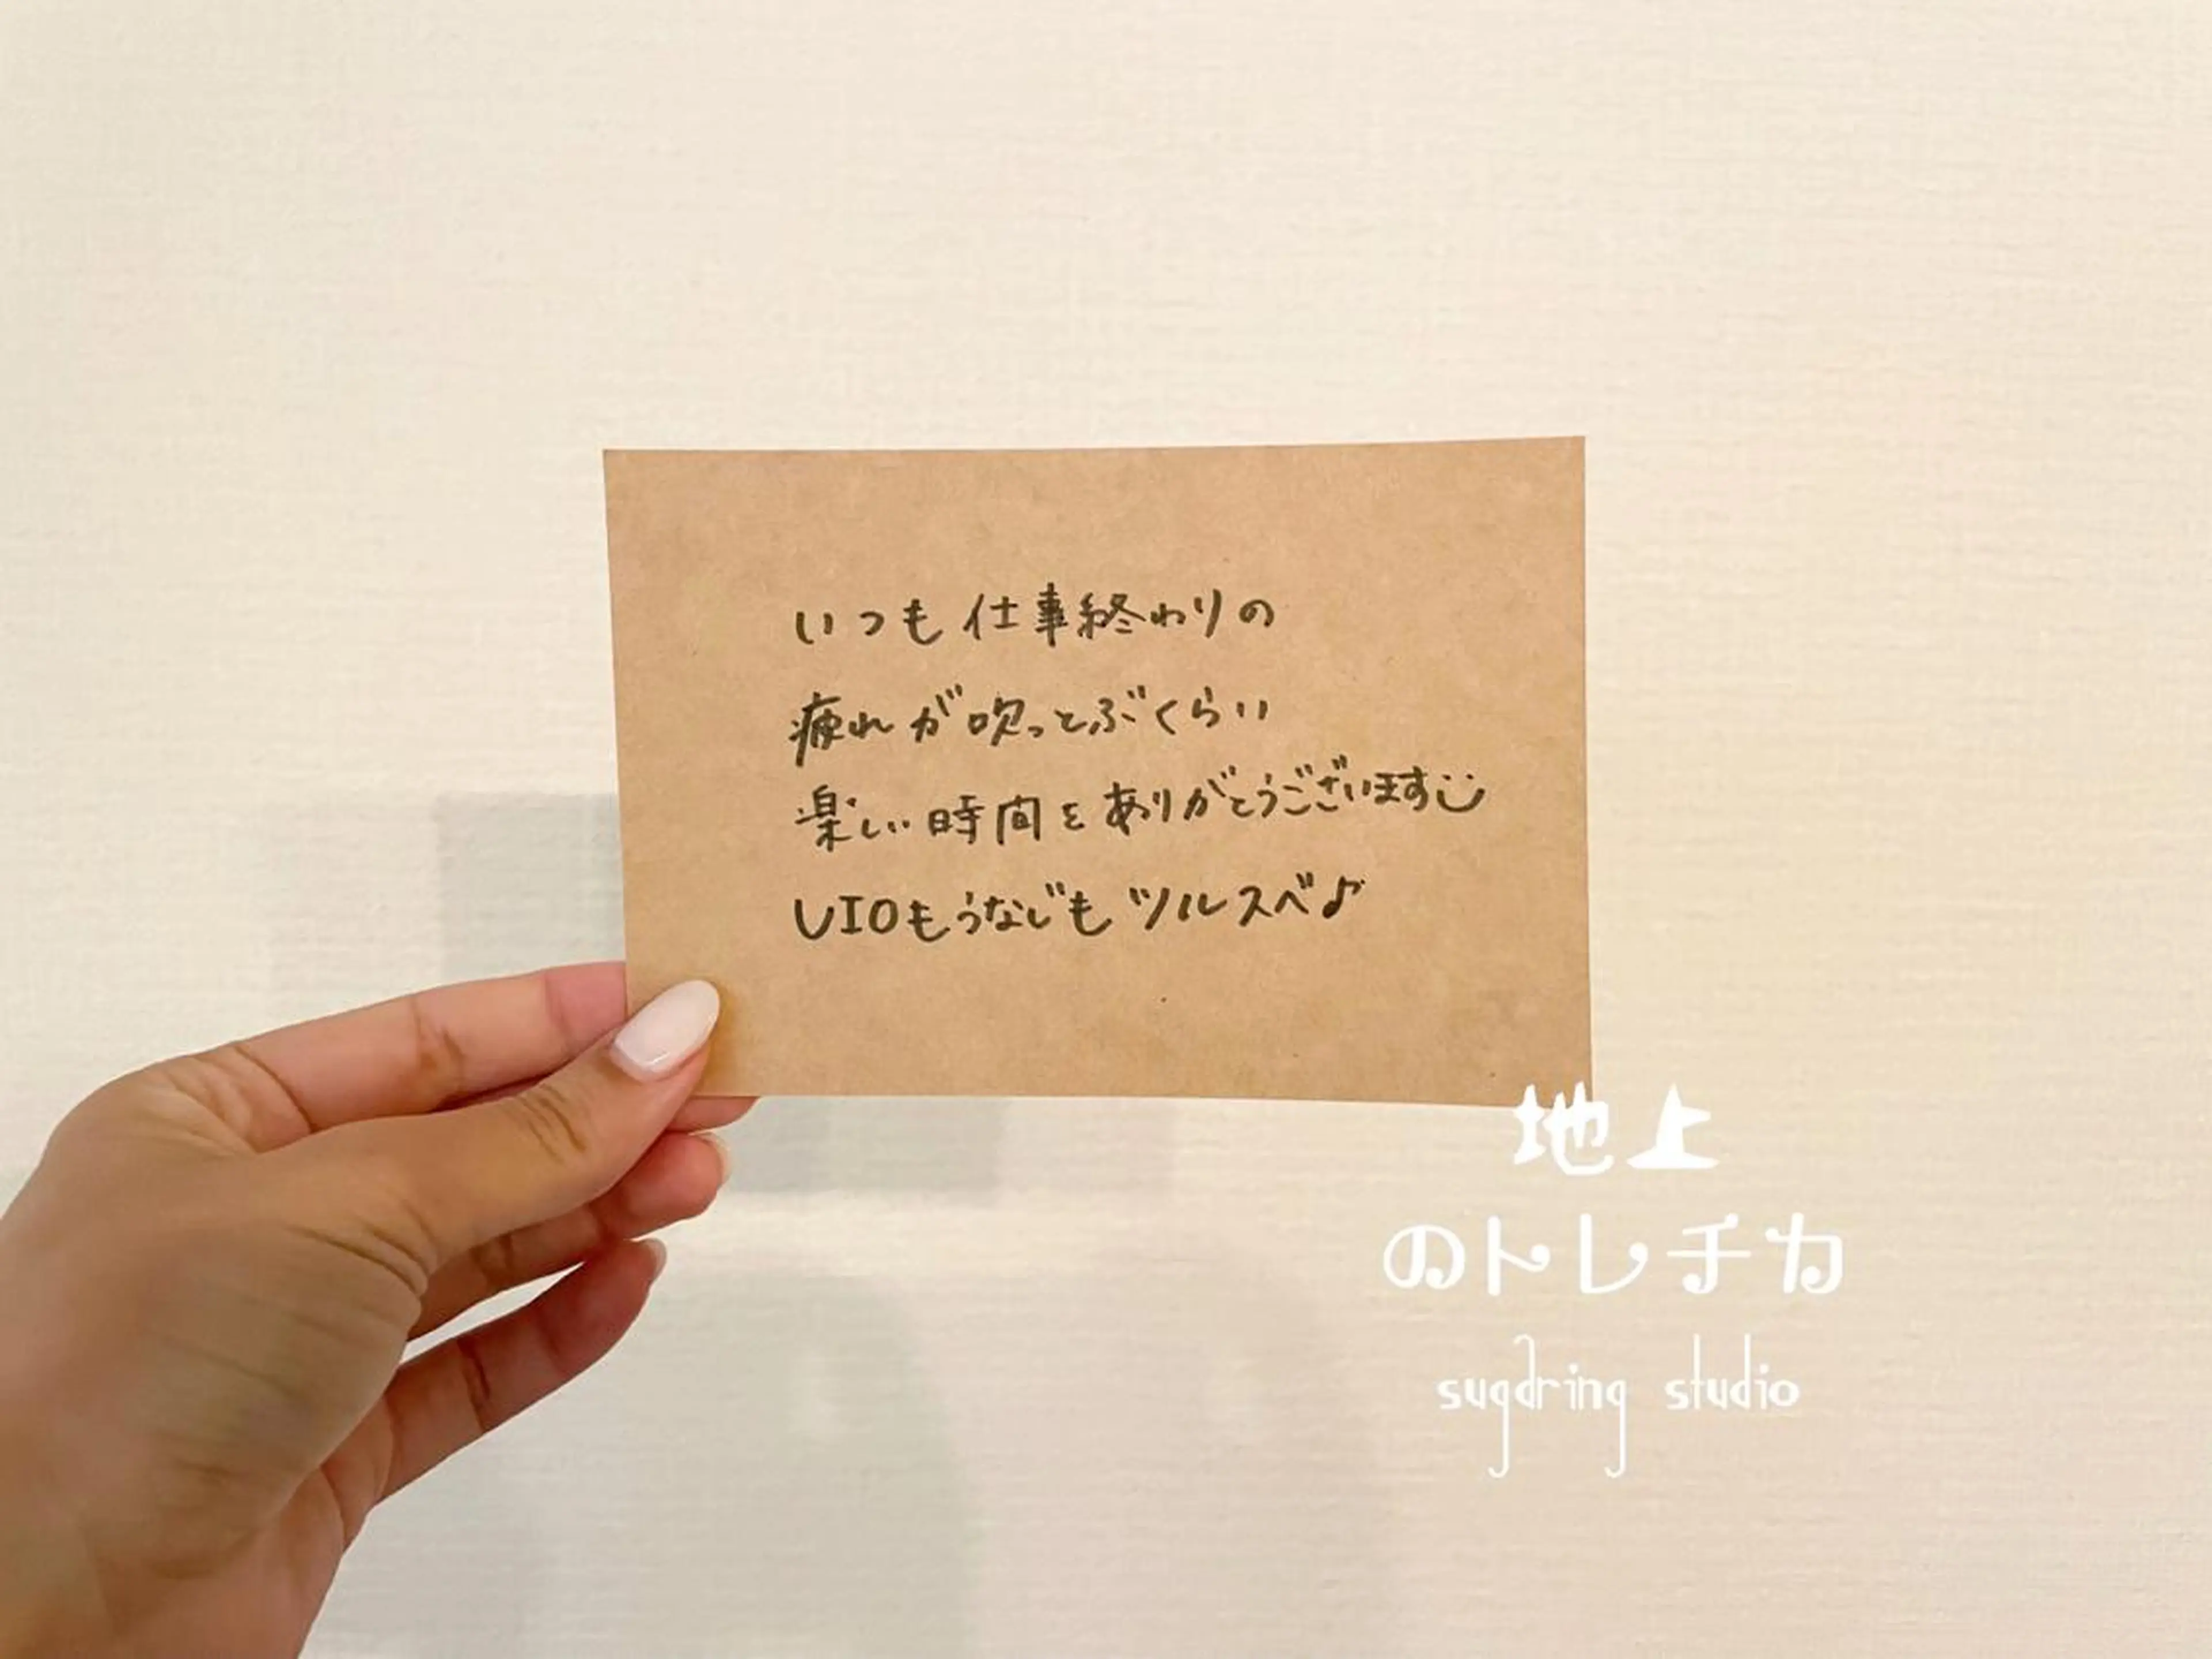 いつも仕事終わりの
疲れが吹っとぶくらい
楽しい時間をありがとうございます
VIOもうなじもツルスベ♪
地上
のトレチカ
sugaring studio